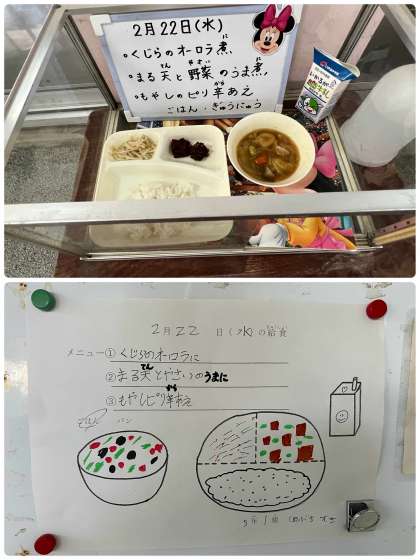 2月22日(水)
・くじらのオーロラ煮
に
・まる天と野菜のうま煮
てん やさい に
・もやしのピリ辛あえ
から
ごはん・ぎゅうにゅう
2月22日(水)の給食
メニュー①くじらのオーロラに
②まる天とやさいのうまに
てん
③もやしピリ辛あえ
から
ごはん パン